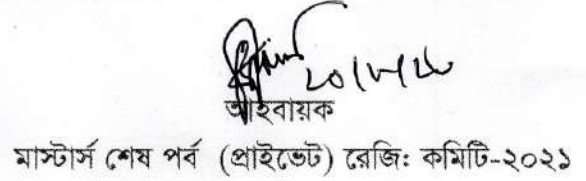 আহবায়ক
মাস্টার্স শেষ পর্ব (প্রাইভেট) রেজি: কমিটি-২০২১